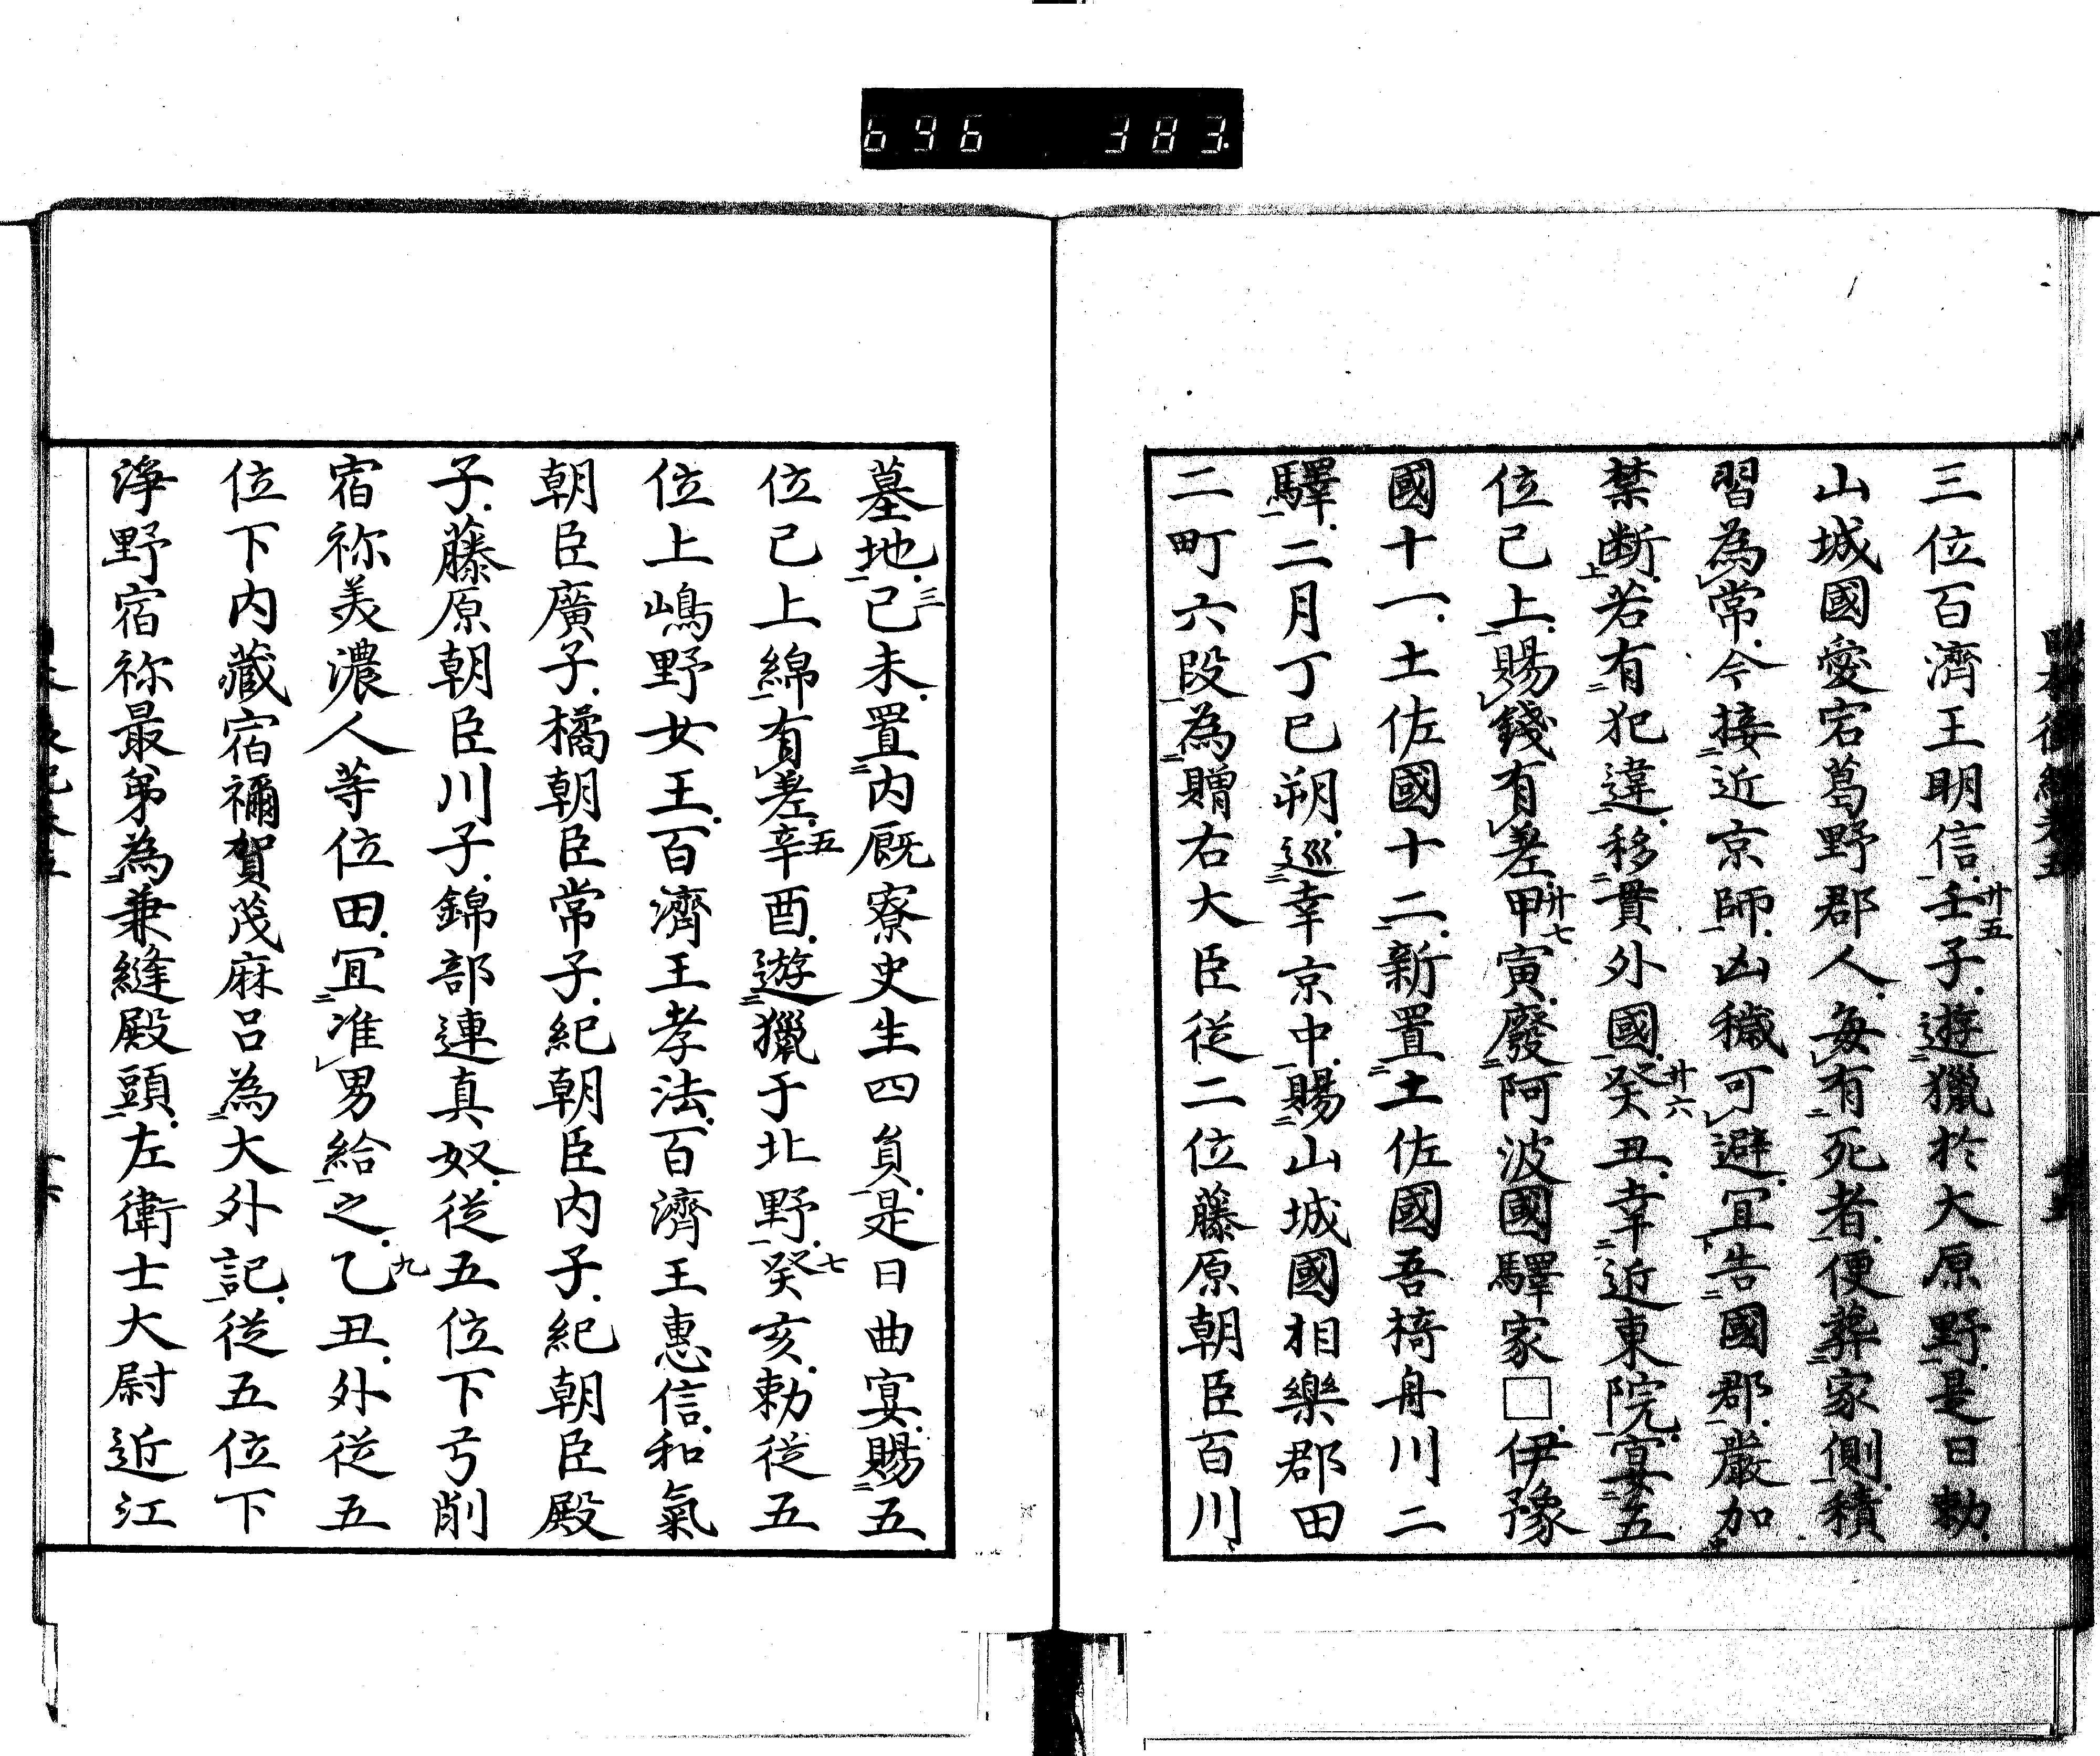 696 383
三位百濟王明信壬子遊獵於大原野是日勅
山城國愛宕葛野郡人毎有死者便葬家側積
習為常今接近京師凶穢可避宜告國郡嚴加
禁断若有犯違移貫外國癸丑幸近東院宴五
位已上賜錢有差甲寅廢阿波國驛家□伊豫
國十一土佐國十二新置土佐國吾椅舟川二
驛二月丁巳朔巡幸京中賜山城國相樂郡田
二町六段為贈右大臣従二位藤原朝臣百川
墓地己未置内厩寮史生四負是日曲宴賜五
位已上綿有差辛酉遊獵于北野癸亥勅従五
位上嶋野女王百濟王孝法百濟王惠信和氣
朝臣廣子橘朝臣常子紀朝臣内子紀朝臣殿
子藤原朝臣川子錦部連真奴従五位下弓削
宿祢美濃人等位田宜准男給之乙丑外従五
位下内藏宿禰賀茂麻呂為大外記従五位下
淨野宿祢最弟為兼縫殿頭左衛士大尉近江